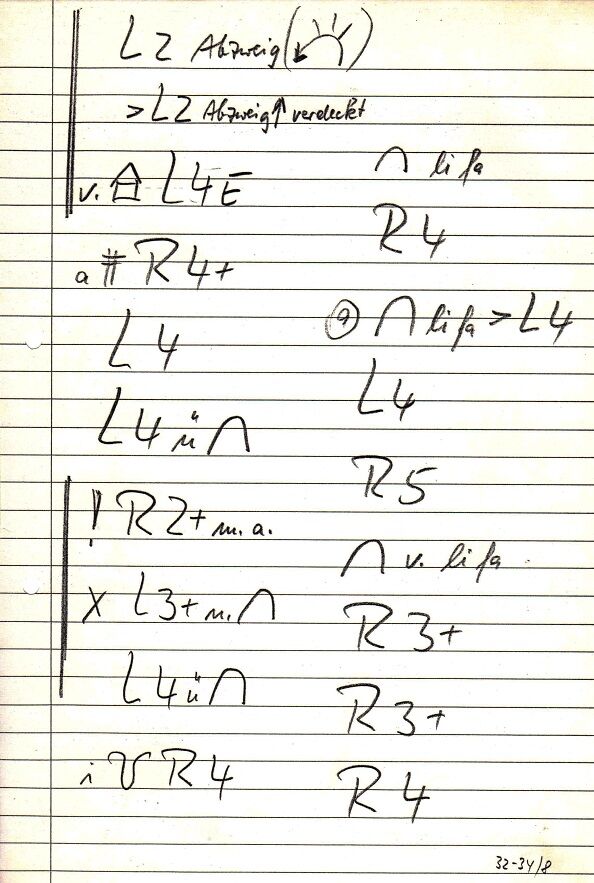 L2 Abzweig ( )
> L2 Abzweig ↑ verdeckt
v. L4E
a # R4+
L4
L4 ü ∩
! R2+ m.a.
X L3+ n. ∩
L4 ü ∩
i V R4
∩ li fa
R4
a ∩ li fa > L4
L4
R5
∩ v. li fa
R3+
R3+
R4
32-34/8